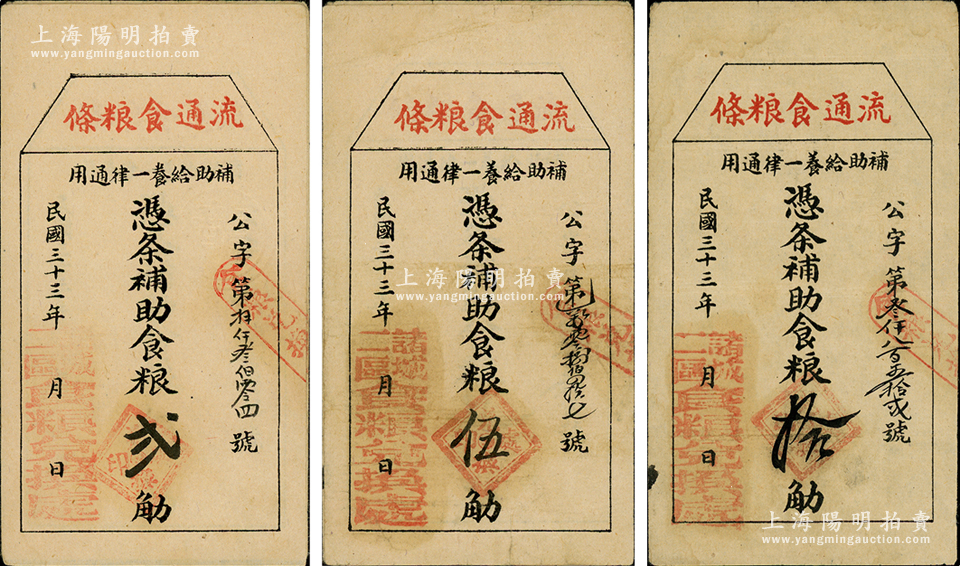 上海陽明拍賣
www.yangmingauction.com
流通食粮條
補助給養一律通用
公字第 仟叁伯零四號
憑条補助食粮弍觔
民國三十三年 月 日
流通食粮條
補助給養一律通用
公字第 號
憑条補助食粮伍觔
民國三十三年 月 日
諸城二區食粮兌換處
上海陽明拍賣
www.yangmingauction.com
流通食粮條
補助給養一律通用
公字第叁仟八百五拾弍號
憑条補助食粮拾觔
民國三十三年 月 日
諸城二區食粮兌換處
上海陽明拍賣
www.yangmingauction.com